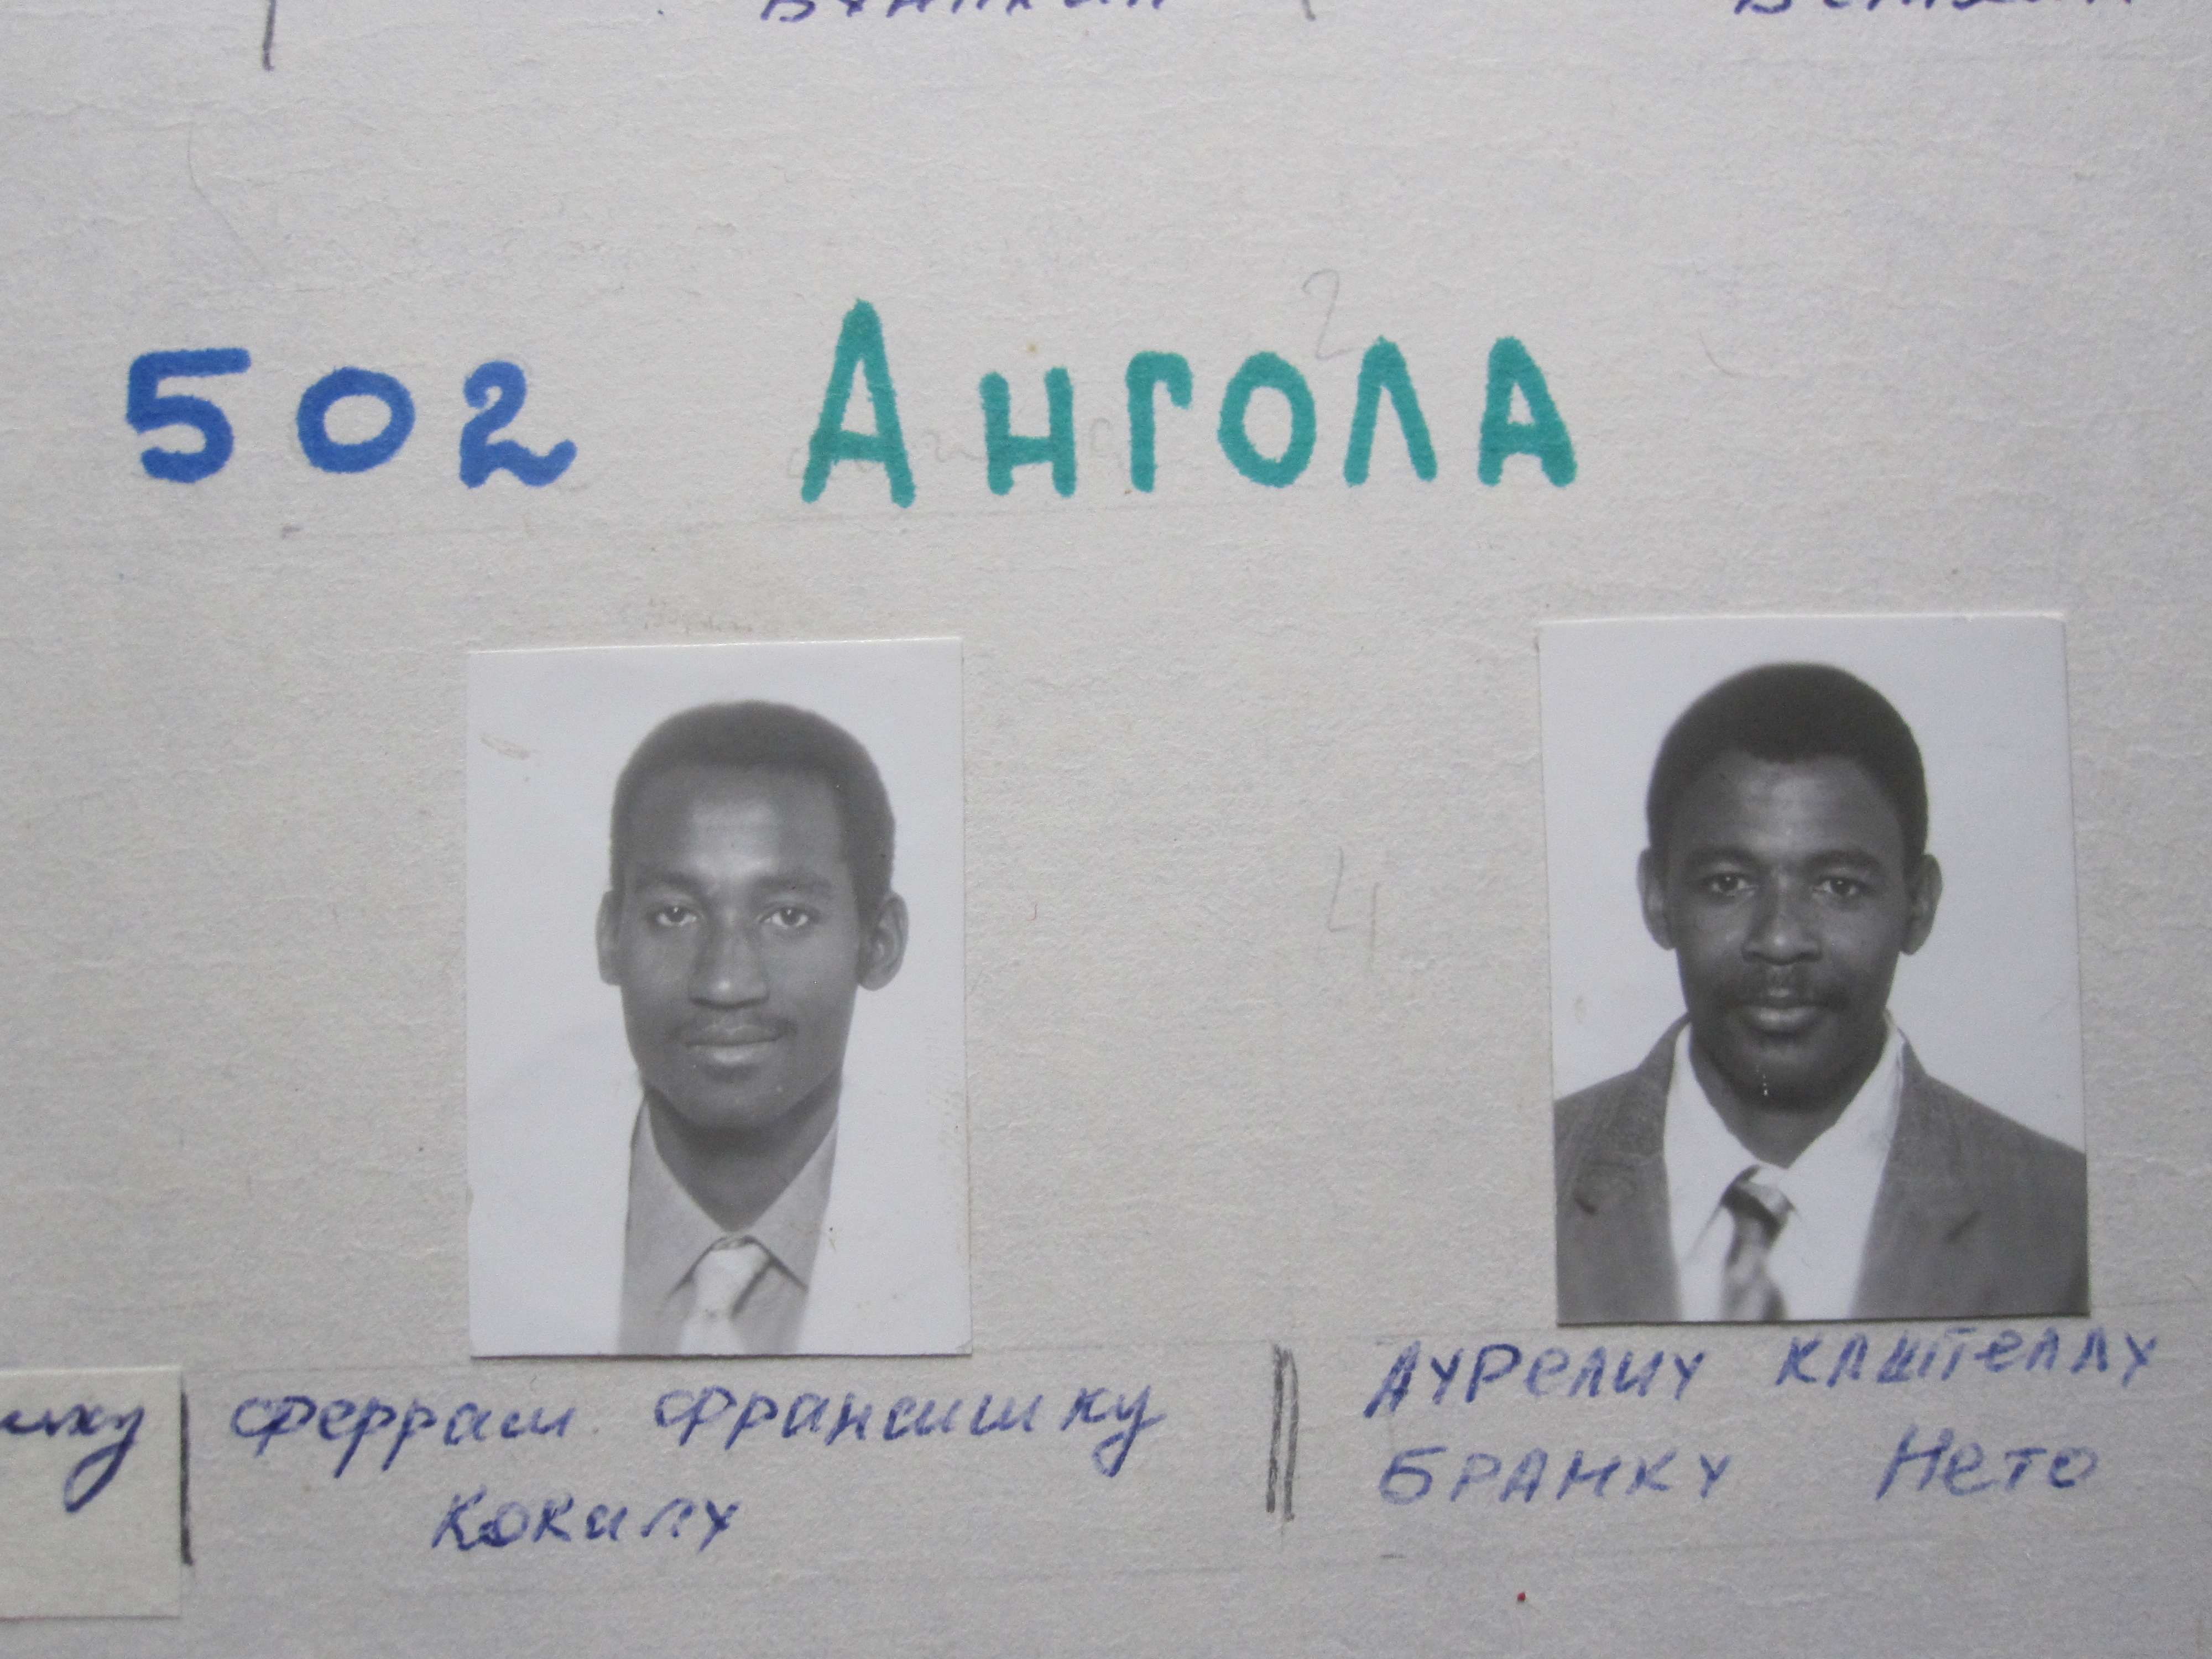 502 Ангола
2
4
Ферраш Франсишку
Кокилу
Аурелиу Каштеллу
Бранку Нето